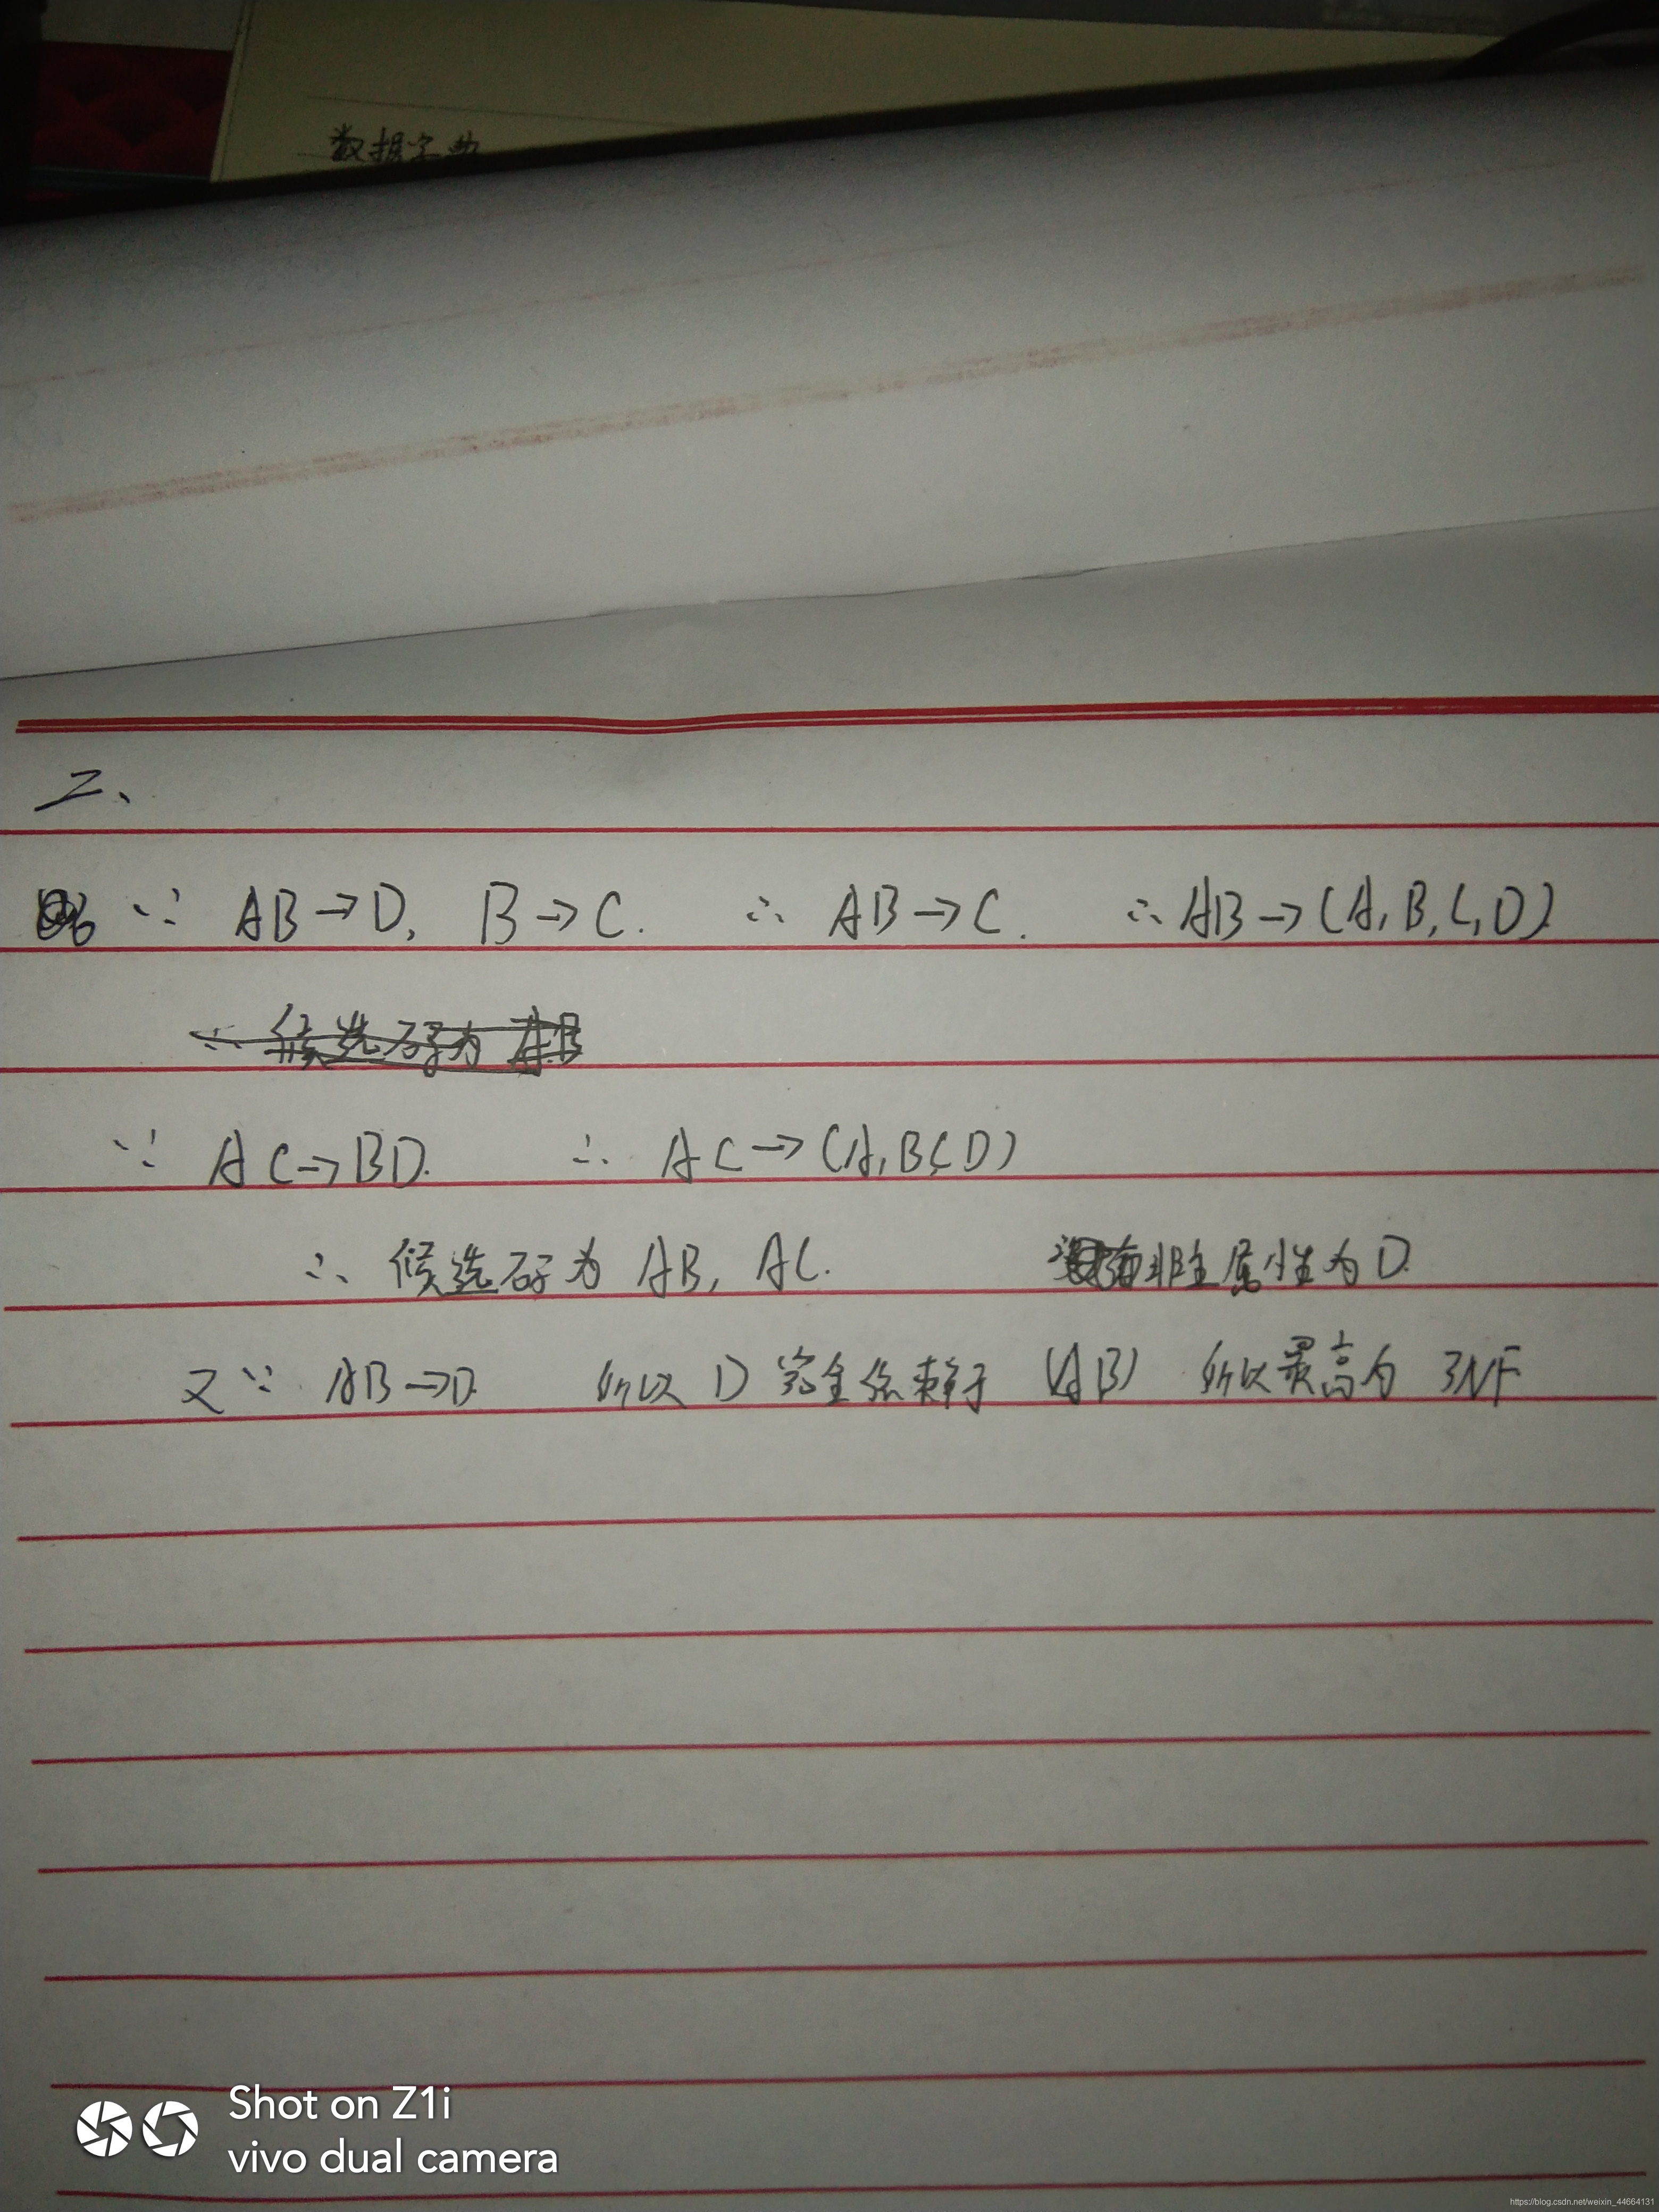 数据字典
二、
∵ AB→D, B→C. ∴ AB→C. ∴ AB→(A,B,C,D)
∴ 候选码为 AB
∵ AC→BD. ∴ AC→(A,B,C,D)
∴ 候选码为 AB, AC. 非主属性为 D.
又∵ AB→D 所以 D 完全依赖于 (AB) 所以最高为 3NF
Shot on Z1i
vivo dual camera
https://blog.csdn.net/weixin_44664131